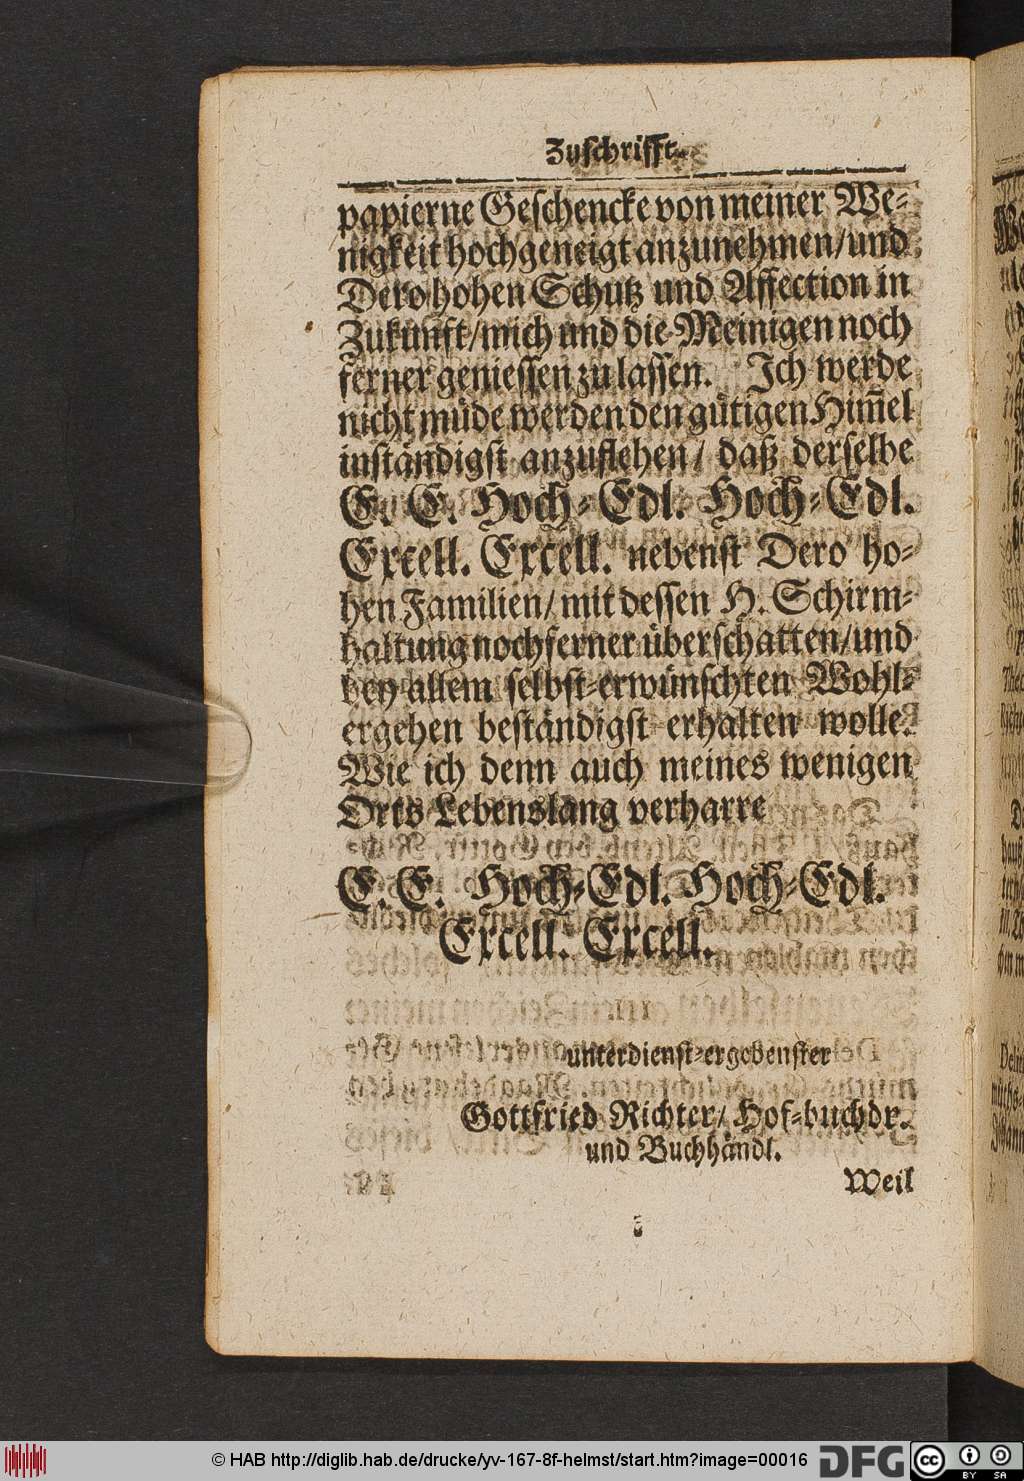 Zuschrifft.
papierne Geschencke von meiner We-
nigkeit hochgeneigt anzunehmen/und
Dero hohen Schutz und Affection in
Zukunft/mich und die Meinigen noch
ferner geniessen zu lassen. Ich werde
nicht müde werden den gütigen Him̅el
inständigst anzuflehen/ daß derselbe
E. E. Hoch-Edl. Hoch-Edl.
Excell. Excell. nebenst Dero ho-
hen Familien/ mit dessen H. Schirm-
haltung noch ferner überschatten/und
bey allem selbst-erwünschten Wohl-
ergehen beständigst erhalten wolle.
Wie ich denn auch meines wenigen
Orts Lebenslang verharre
E. E. Hoch-Edl. Hoch-Edl.
Excell. Excell.
unterdienst-ergebenster
Gottfried Richter/ Hof-buchdr.
und Buchhändl.
Weil
© HAB http://diglib.hab.de/drucke/yv-167-8f-helmst/start.htm?image=00016
DFG
cc BY SA